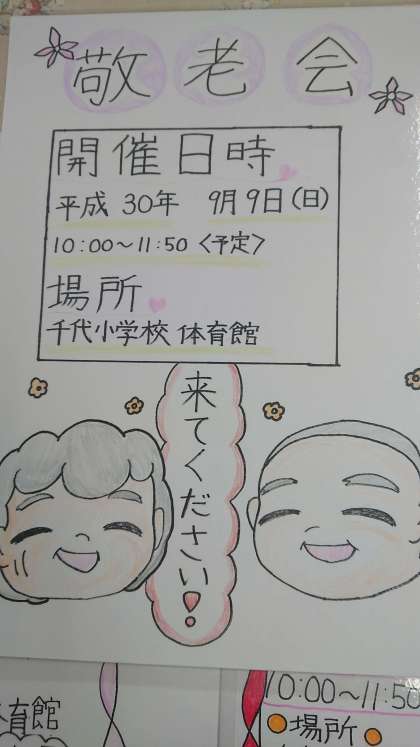 敬老会
開催日時
平成 30年 9月9日(日)
10:00～11:50〈予定〉
場所
千代小学校 体育館
来てください!
体育館
10:00～11:50
場所